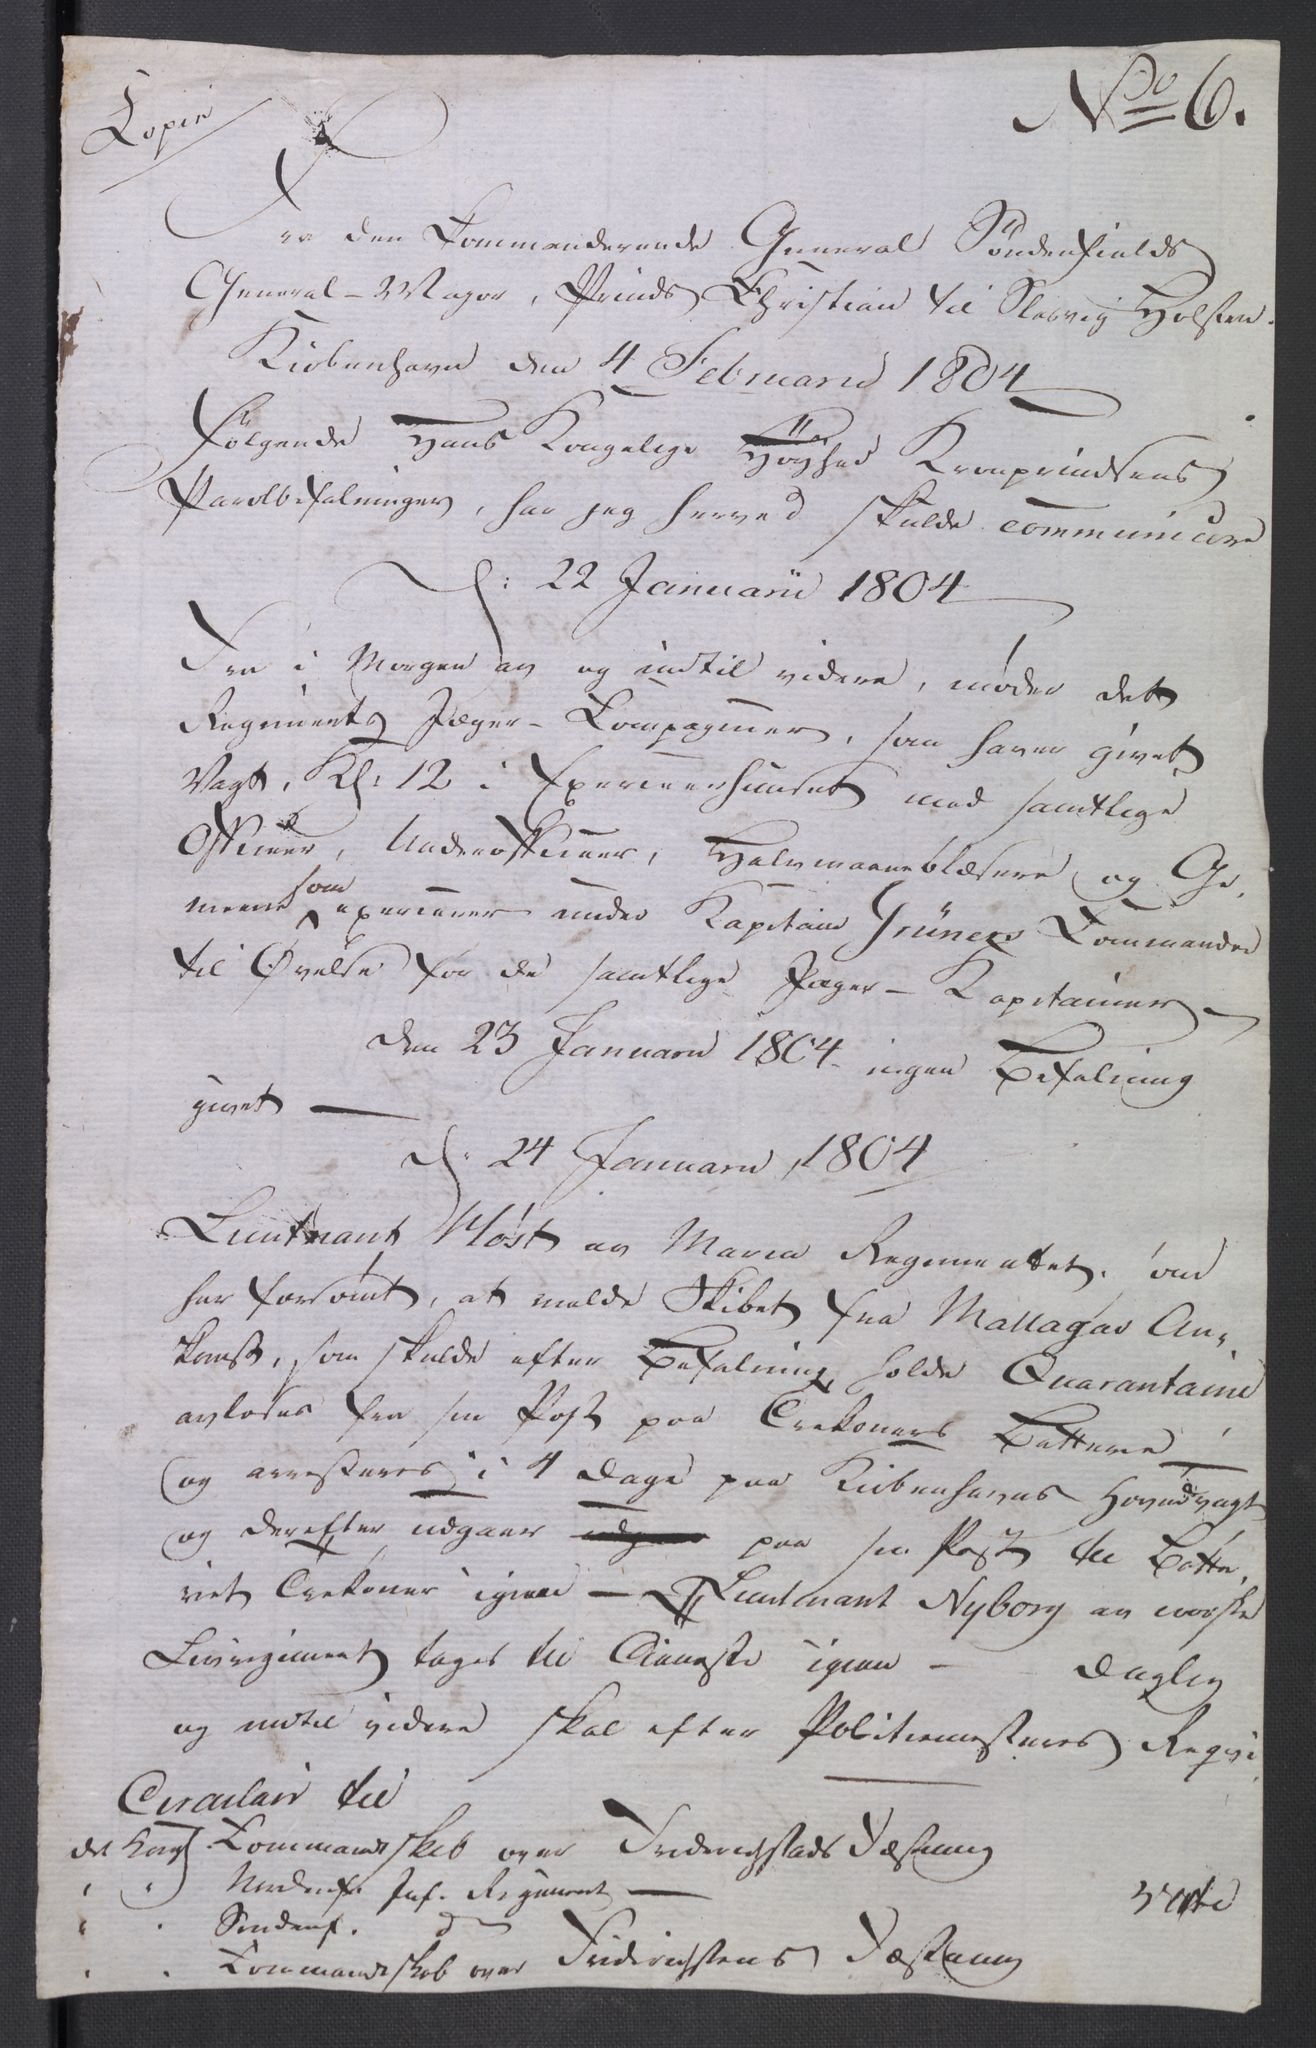 Kopie
No 6.
Fra den Kommanderende General Söndenfields
General-Major, Prinds Christian til Slesvig Holsten.
Kiöbenhavn den 4 Februarii 1804
Følgende Hans Kongelige Høyhed Kronprindsens
Parolbefalninger, har jeg herved skulde communicere
D: 22 Januarii 1804
Fra i Morgen av og indtil videre, møder det
Regiments Jæger-Compagnier, som haver givet
Vagt, Kl: 12 i Exerceerhuuset med samtlige
Officierer, Underofficierer, Halvmaaneblæsere og Ge,
meene som exercerer under Kapitain Grüners Commando
til Øvelse for de samtlige Jæger-Kapitainer
den 23 Januarii 1804 ingen Befalning
givet
D: 24 Januarii 1804
Lieutnant Høst av Marine Regimentet, som
har forsømt, at melde Skibet fra Mallagas An,
komst, som skulde efter Befalning holde Quarantaine
avløses fra sin Post paa Trekoners Batterie
og arresteres i 4 Dage paa Kiöbenhavns Hovedvagt
og derefter udgaaer paa sin Post til Batte,
riet Trekoner igien — Lieutnant Nyborg av norske
Livregiment tages til Tieneste igien — Daglig
og indtil videre skal efter Politiemesterens Reqvi
Circulair til
det Kongl Kommandtskab over Friderichstads Fæstning
" " Nordenf. Inf. Regiment —
" " Söndenf. do
" " Kommandtskab over Friderichstens Fæstning